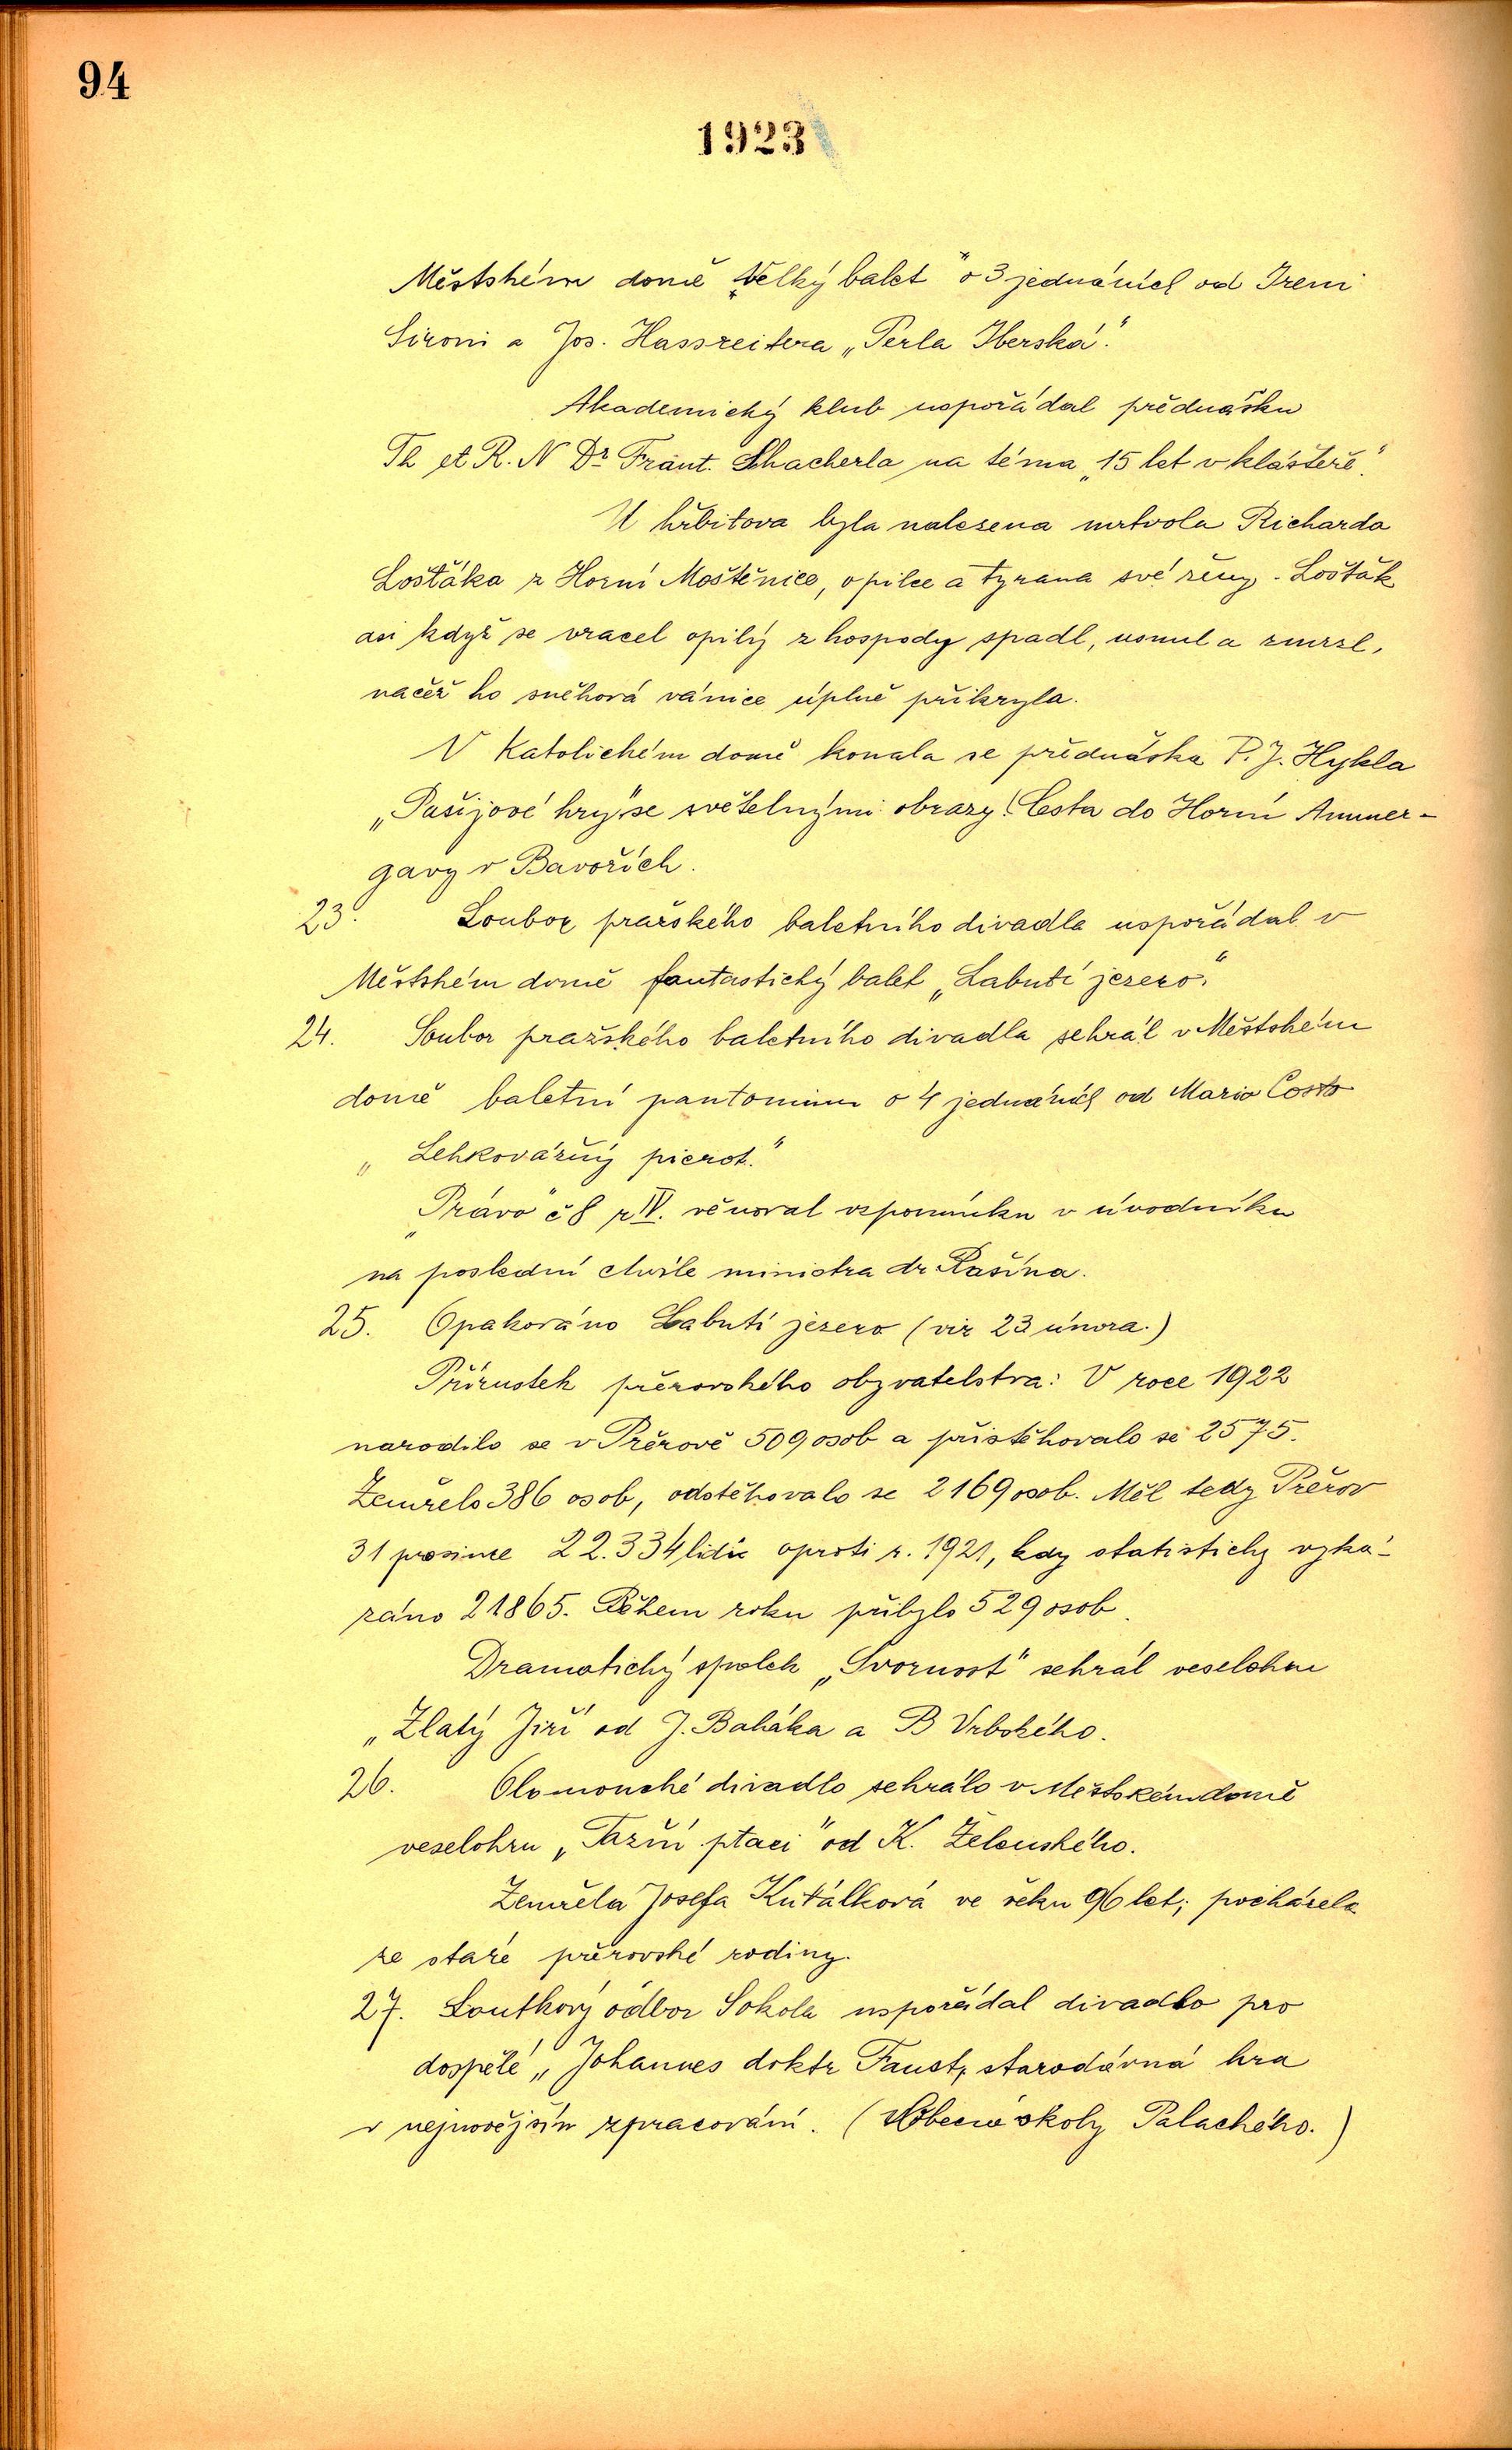 94
1923
Městském domě „Velký balet" o 3 jednáních od Ireni
Sironi a Jos. Hassreitera „Perla Iberská."
Akademický klub uspořádal přednášku
Th et R. N Dr Frant. Shacherla na téma „15 let v klášteře."
U hřbitova byla nalezena mrtvola Richarda
Lošťáka z Horní Moštěnice, opilce a tyrana své ženy. Lošťák
asi když se vracel opilý z hospody spadl, usnul a zmrzl,
načež ho sněhová vánice úplně přikryla.
V Katolickém domě konala se přednáška P. J. Hykla
„Pašijové hry" se světelnými obrazy. (Cesta do Horní Ammer-
gavy v Bavořích.
23. Soubor pražského baletního divadla uspořádal v
Městském domě fantastický balet „Labutí jezero."
24. Soubor pražského baletního divadla sehrál v Městském
domě baletní pantomimu o 4 jednáních od Mario Costo
„Lehkovážný pierot."
„Právo" č 8 r IV. věnoval vzpomínku v úvodníku
na poslední chvíle ministra dr Rašína.
25. Opakováno Labutí jezero (viz 23 února.)
Přírustek přerovského obyvatelstva: V roce 1922
narodilo se v Přerově 509 osob a přistěhovalo se 2575.
Zemřelo 386 osob, odstěhovalo se 2169 osob. Měl tedy Přerov
31 prosince 22.334 lidí oproti r. 1921, kdy statisticky vyká-
záno 21865. Během roku přibylo 529 osob.
Dramatický spolek „Svornost" sehrál veselohru
„Zlatý Jiří od J. Baláka a B Vrbského.
26. Olomoucké divadlo sehrálo v Městském domě
veselohru „Tažní ptaci" od K. Želenského.
Zemřela Josefa Kutálková ve věku 96 let; pocházela
ze staré přerovské rodiny.
27. Loutkový odbor Sokola uspořádal divadlo pro
dospělé „Johannes doktr Faust, starodávná hra
v nejnovějším zpracování. (V Obecné školy Palackého.)